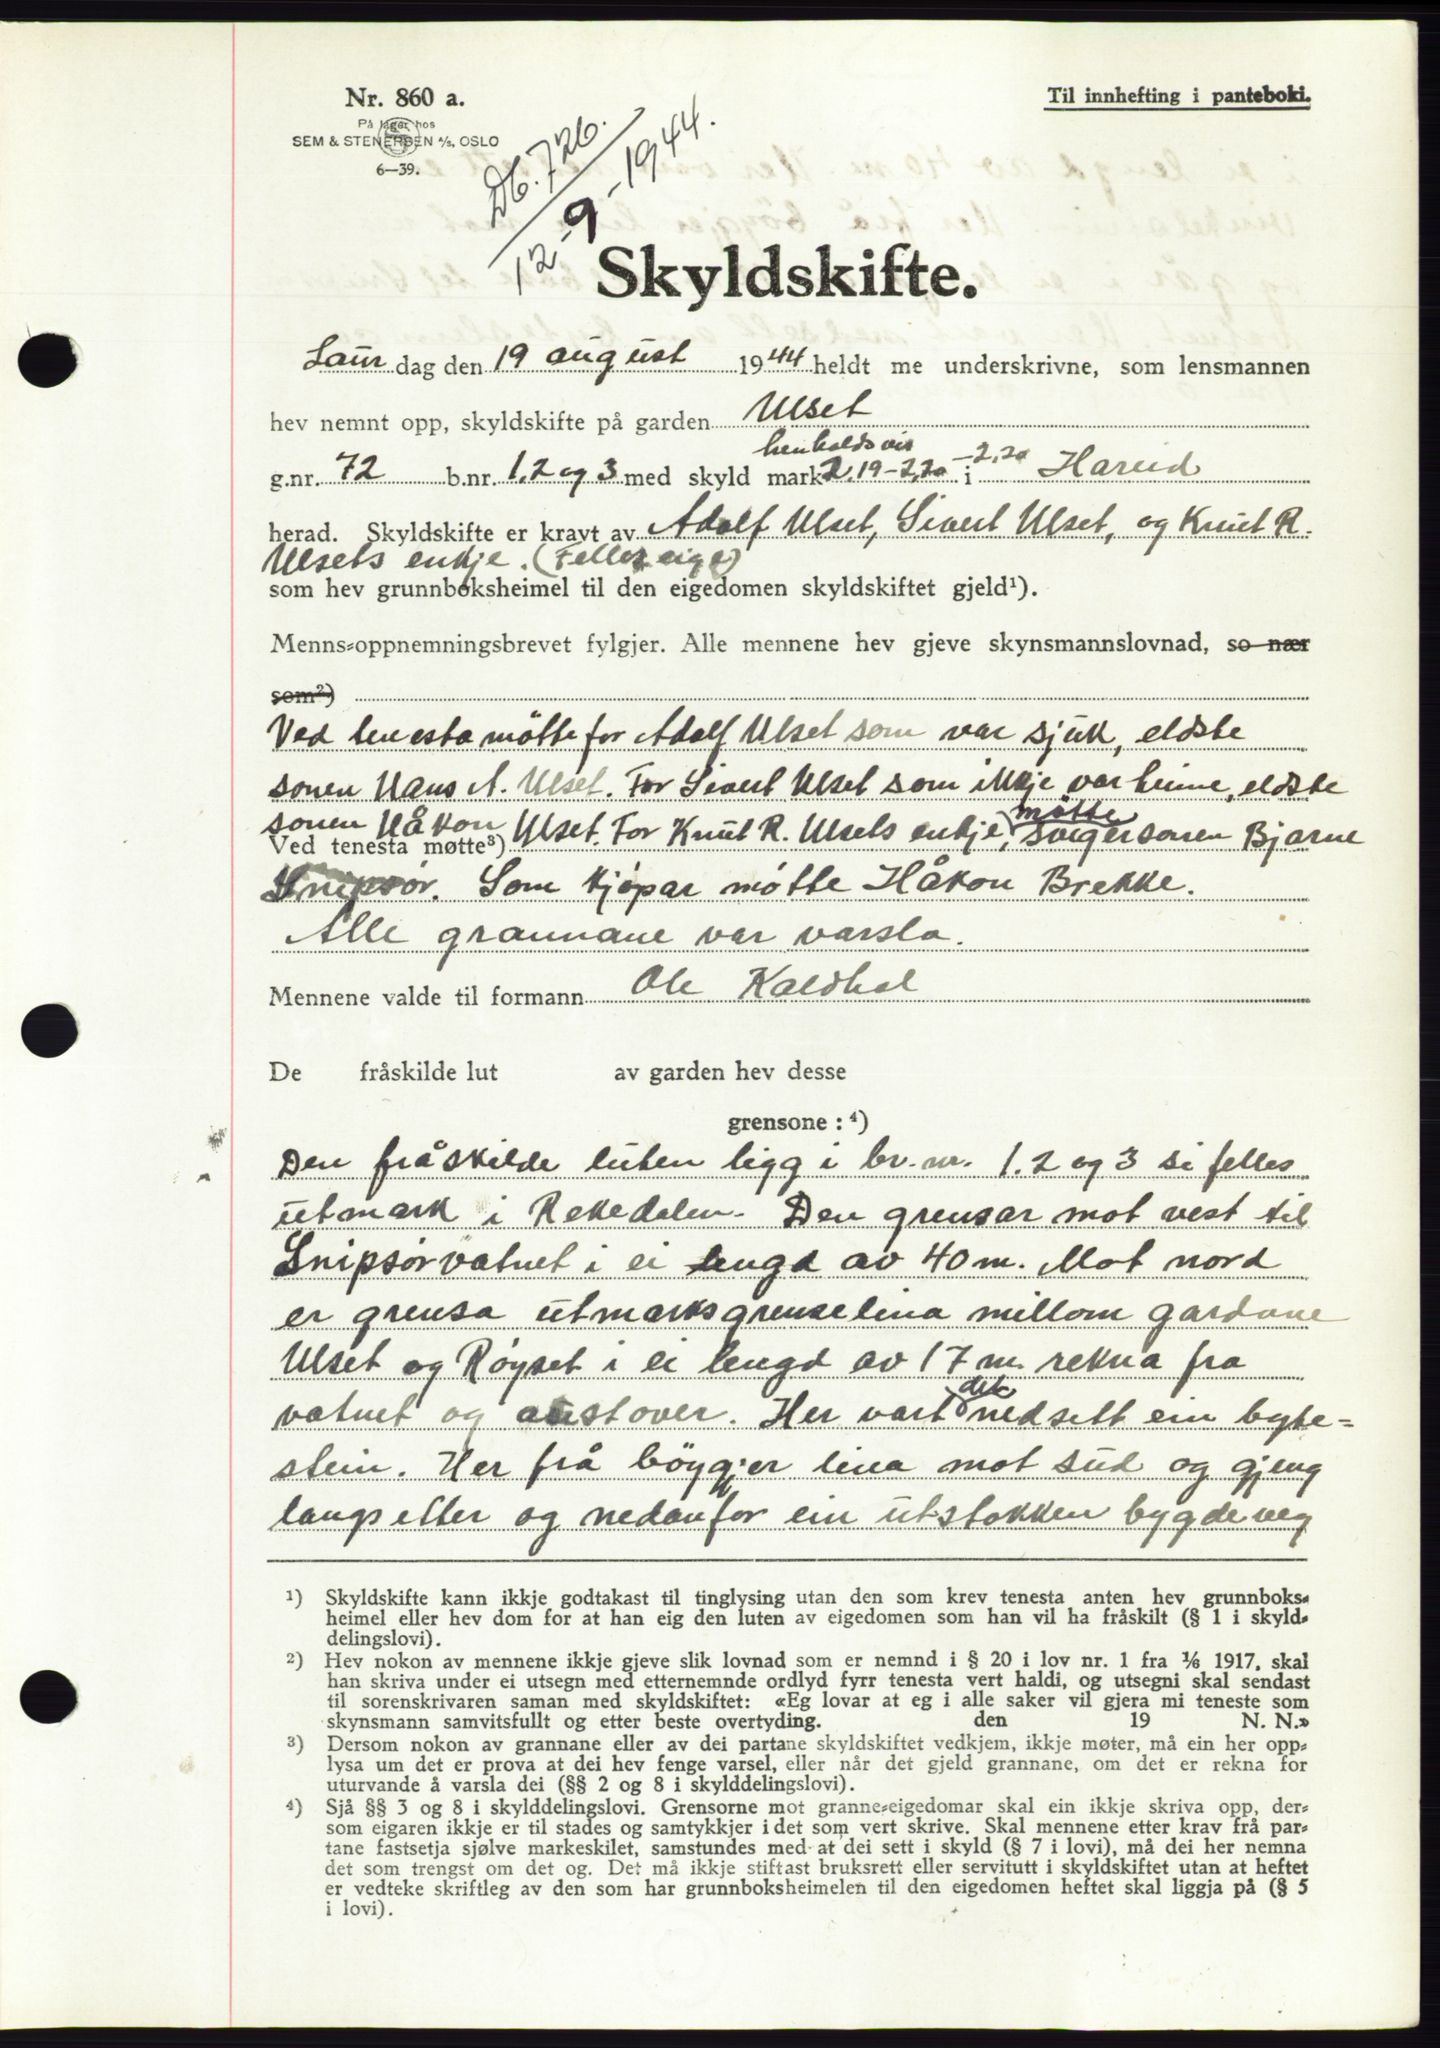 Nr. 860 a.
Til innhefting i panteboki.
På lager hos
SEM & STENERSEN A/S, OSLO
6—39.
Db. 726.
12-9-1944.
Skyldskifte.
Laur dag den 19 august 1944 heldt me underskrivne, som lensmannen
hev nemnt opp, skyldskifte på garden Ulset
henholdsvis
g.nr. 72 b.nr. 1, 2 og 3 med skyld mark 2,19-2,20 -2,20 i Hareid
herad. Skyldskifte er kravt av Adolf Ulset, Sivert Ulset, og Knut R.
Ulsets enkje. (Felles eige)
som hev grunnboksheimel til den eigedomen skyldskiftet gjeld¹).
Menns-oppnemningsbrevet fylgjer. Alle mennene hev gjeve skynsmannslovnad, so nær
som²)
Ved tenesta møtte for Adolf Ulset som var sjuk, eldste
sonen Hans A. Ulset. For Sivert Ulset som ikkje var heime, eldste
sonen Håkon Ulset. For Knut R. Ulsets enkje, møtte svigersonen Bjarne
Ved tenesta møtte³)
Snipsør. Som kjøpar møtte Håkon Brekke.
Alle grannane var varsla.
Mennene valde til formann Ole Kaldhol
De fråskilde lut av garden hev desse
grensone : ⁴)
Den fråskilde luten ligg i br. nr. 1. 2 og 3 si felles
utmark i Rekedalen. Den grensar mot vest til
Snipsørvatnet i ei lengd av 40 m. Mot nord
er grensa utmarksgrenselina millom gardane
Ulset og Røyset i ei lengd av 17 m. rekna fra
vatnet og austover. Her vart det nedsett ein byte-
stein. Her frå böygjer lina mot sud og gjeng
langs etter og nedanfor ein utstokken bygdeveg
¹) Skyldskifte kann ikkje godtakast til tinglysing utan den som krev tenesta anten hev grunnboks-
heimel eller hev dom for at han eig den luten av eigedomen som han vil ha fråskilt (§ 1 i skyld-
delingslovi).
²) Hev nokon av mennene ikkje gjeve slik lovnad som er nemnd i § 20 i lov nr. 1 fra ⅙ 1917, skal
han skriva under ei utsegn med etternemnde ordlyd fyrr tenesta vert haldi, og utsegni skal sendast
til sorenskrivaren saman med skyldskiftet: «Eg lovar at eg i alle saker vil gjera mi teneste som
skynsmann samvitsfullt og etter beste overtyding. den 19 N. N.»
³) Dersom nokon av grannane eller av dei partane skyldskiftet vedkjem, ikkje møter, må ein her opp-
lysa um det er prova at dei hev fenge varsel, eller når det gjeld grannane, om det er rekna for
uturvande å varsla dei (§§ 2 og 8 i skylddelingslovi).
⁴) Sjå §§ 3 og 8 i skylddelingslovi. Grensorne mot granne-eigedomar skal ein ikkje skriva opp, der-
som eigaren ikkje er til stades og samtykkjer i det som vert skrive. Skal mennene etter krav frå par-
tane fastsetja sjølve markeskilet, samstundes med at dei sett i skyld (§ 7 i lovi), må dei her nemna
det som trengst om det og. Det må ikkje stiftast bruksrett eller servitutt i skyldskiftet utan at heftet
er vedteke skriftleg av den som har grunnboksheimelen til den eigedomen heftet skal liggja på (§ 5
i lovi).